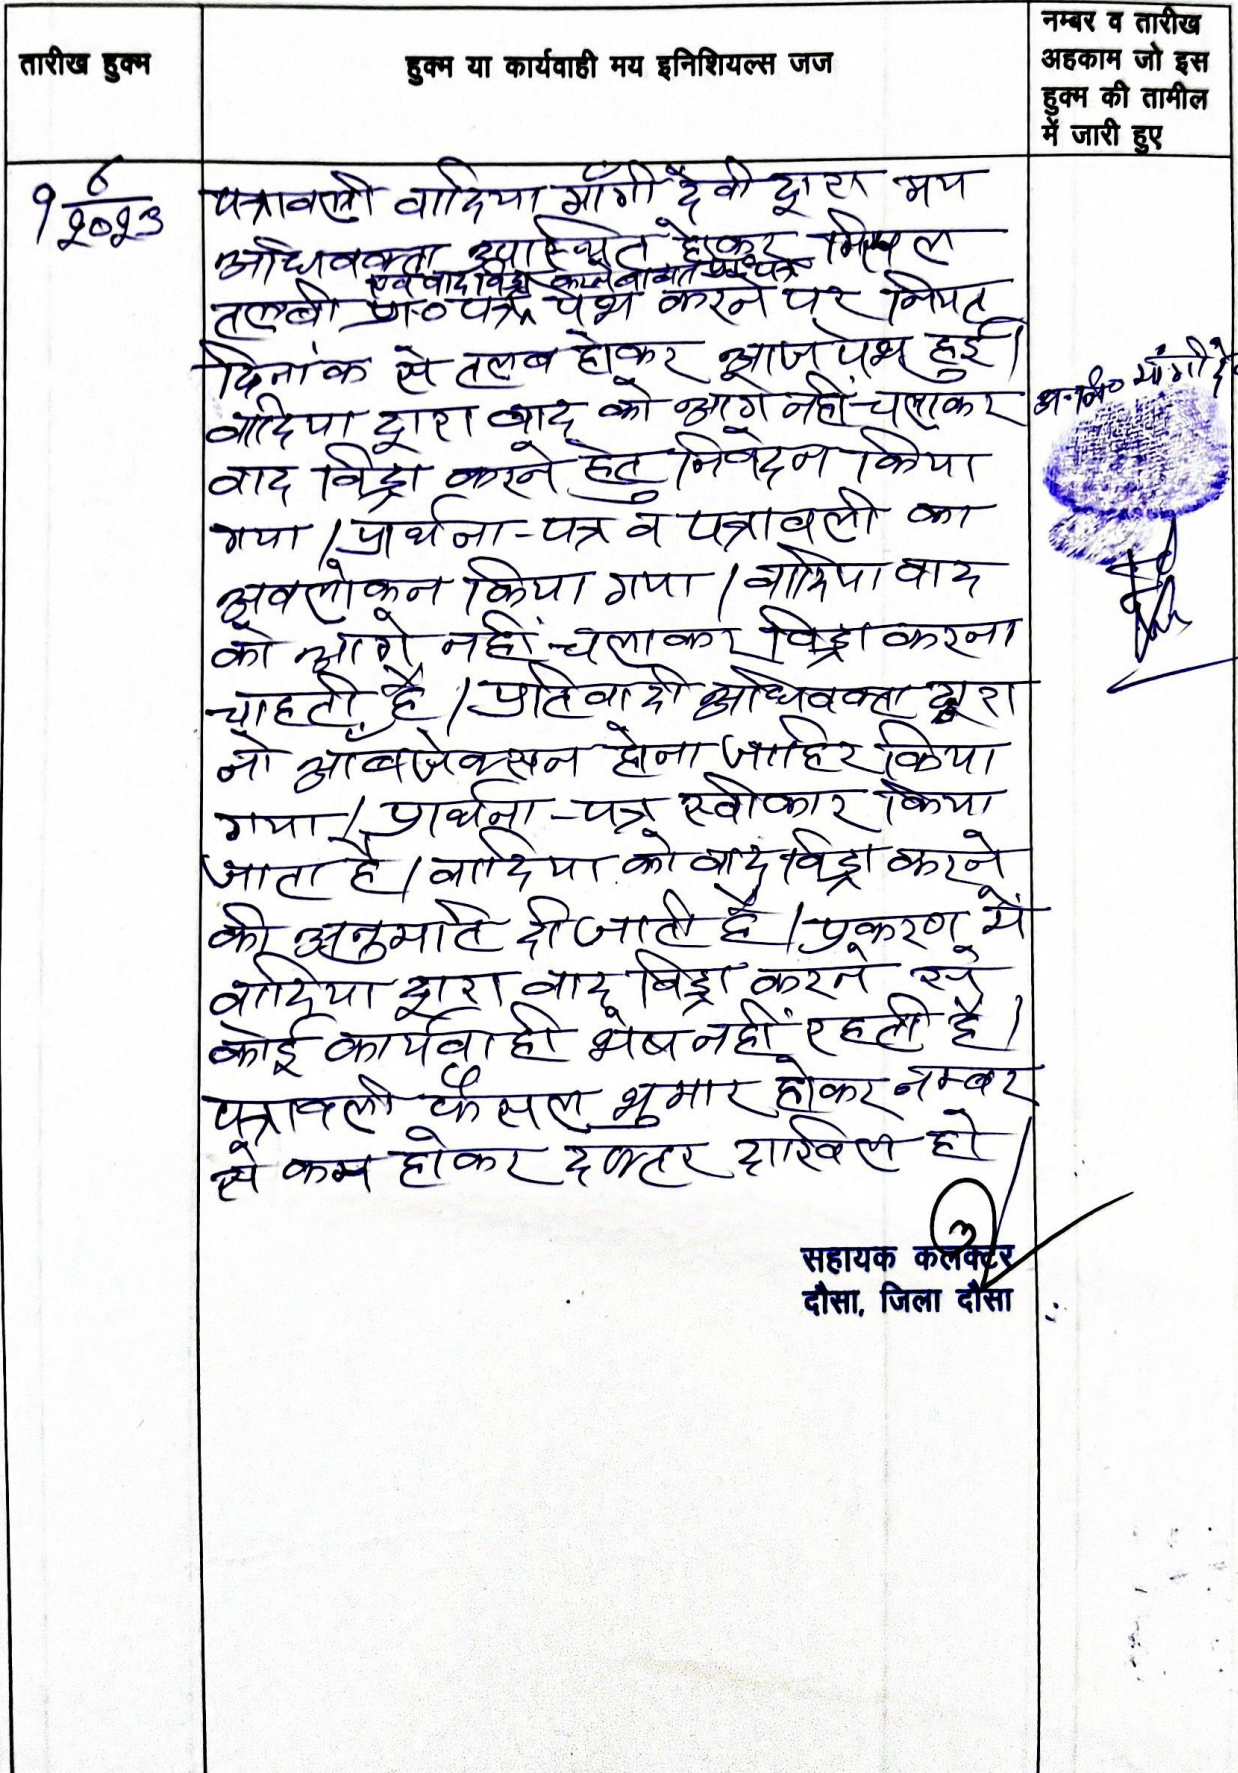 तारीख हुक्म
हुक्म या कार्यवाही मय इनिशियल्स जज
नम्बर व तारीख
अहकाम जो इस
हुक्म की तामील
में जारी हुए
9 6/2023
पत्रावली वादिया माँगी देवी द्वारा मय
अधिवक्ता उपस्थित होकर मिसल
एवं वाद विड्रा करने बाबत प्रा० पत्र
तलबी प्रा० पत्र पेश करने पर नियत
दिनांक से तलब होकर आज पेश हुई।
वादिया द्वारा वाद को आगे नहीं चलाकर
वाद विड्रा करने हेतु निवेदन किया
गया। प्रार्थना-पत्र व पत्रावली का
अवलोकन किया गया। वादिया वाद
को आगे नहीं चलाकर विड्रा करना
चाहती है। प्रतिवादी अधिवक्ता द्वारा
नो ऑब्जेक्सन होना जाहिर किया
गया। प्रार्थना-पत्र स्वीकार किया
जाता है। वादिया को वाद विड्रा करने
की अनुमति दी जाती है। प्रकरण में
वादिया द्वारा वाद विड्रा करने से
कोई कार्यवाही शेष नहीं रहती है।
पत्रावली फैसल शुमार होकर नम्बर
से कम होकर दफ्तर दाखिल हो।
अ.नि० मांगी दे
सहायक कलक्टर
दौसा, जिला दौसा